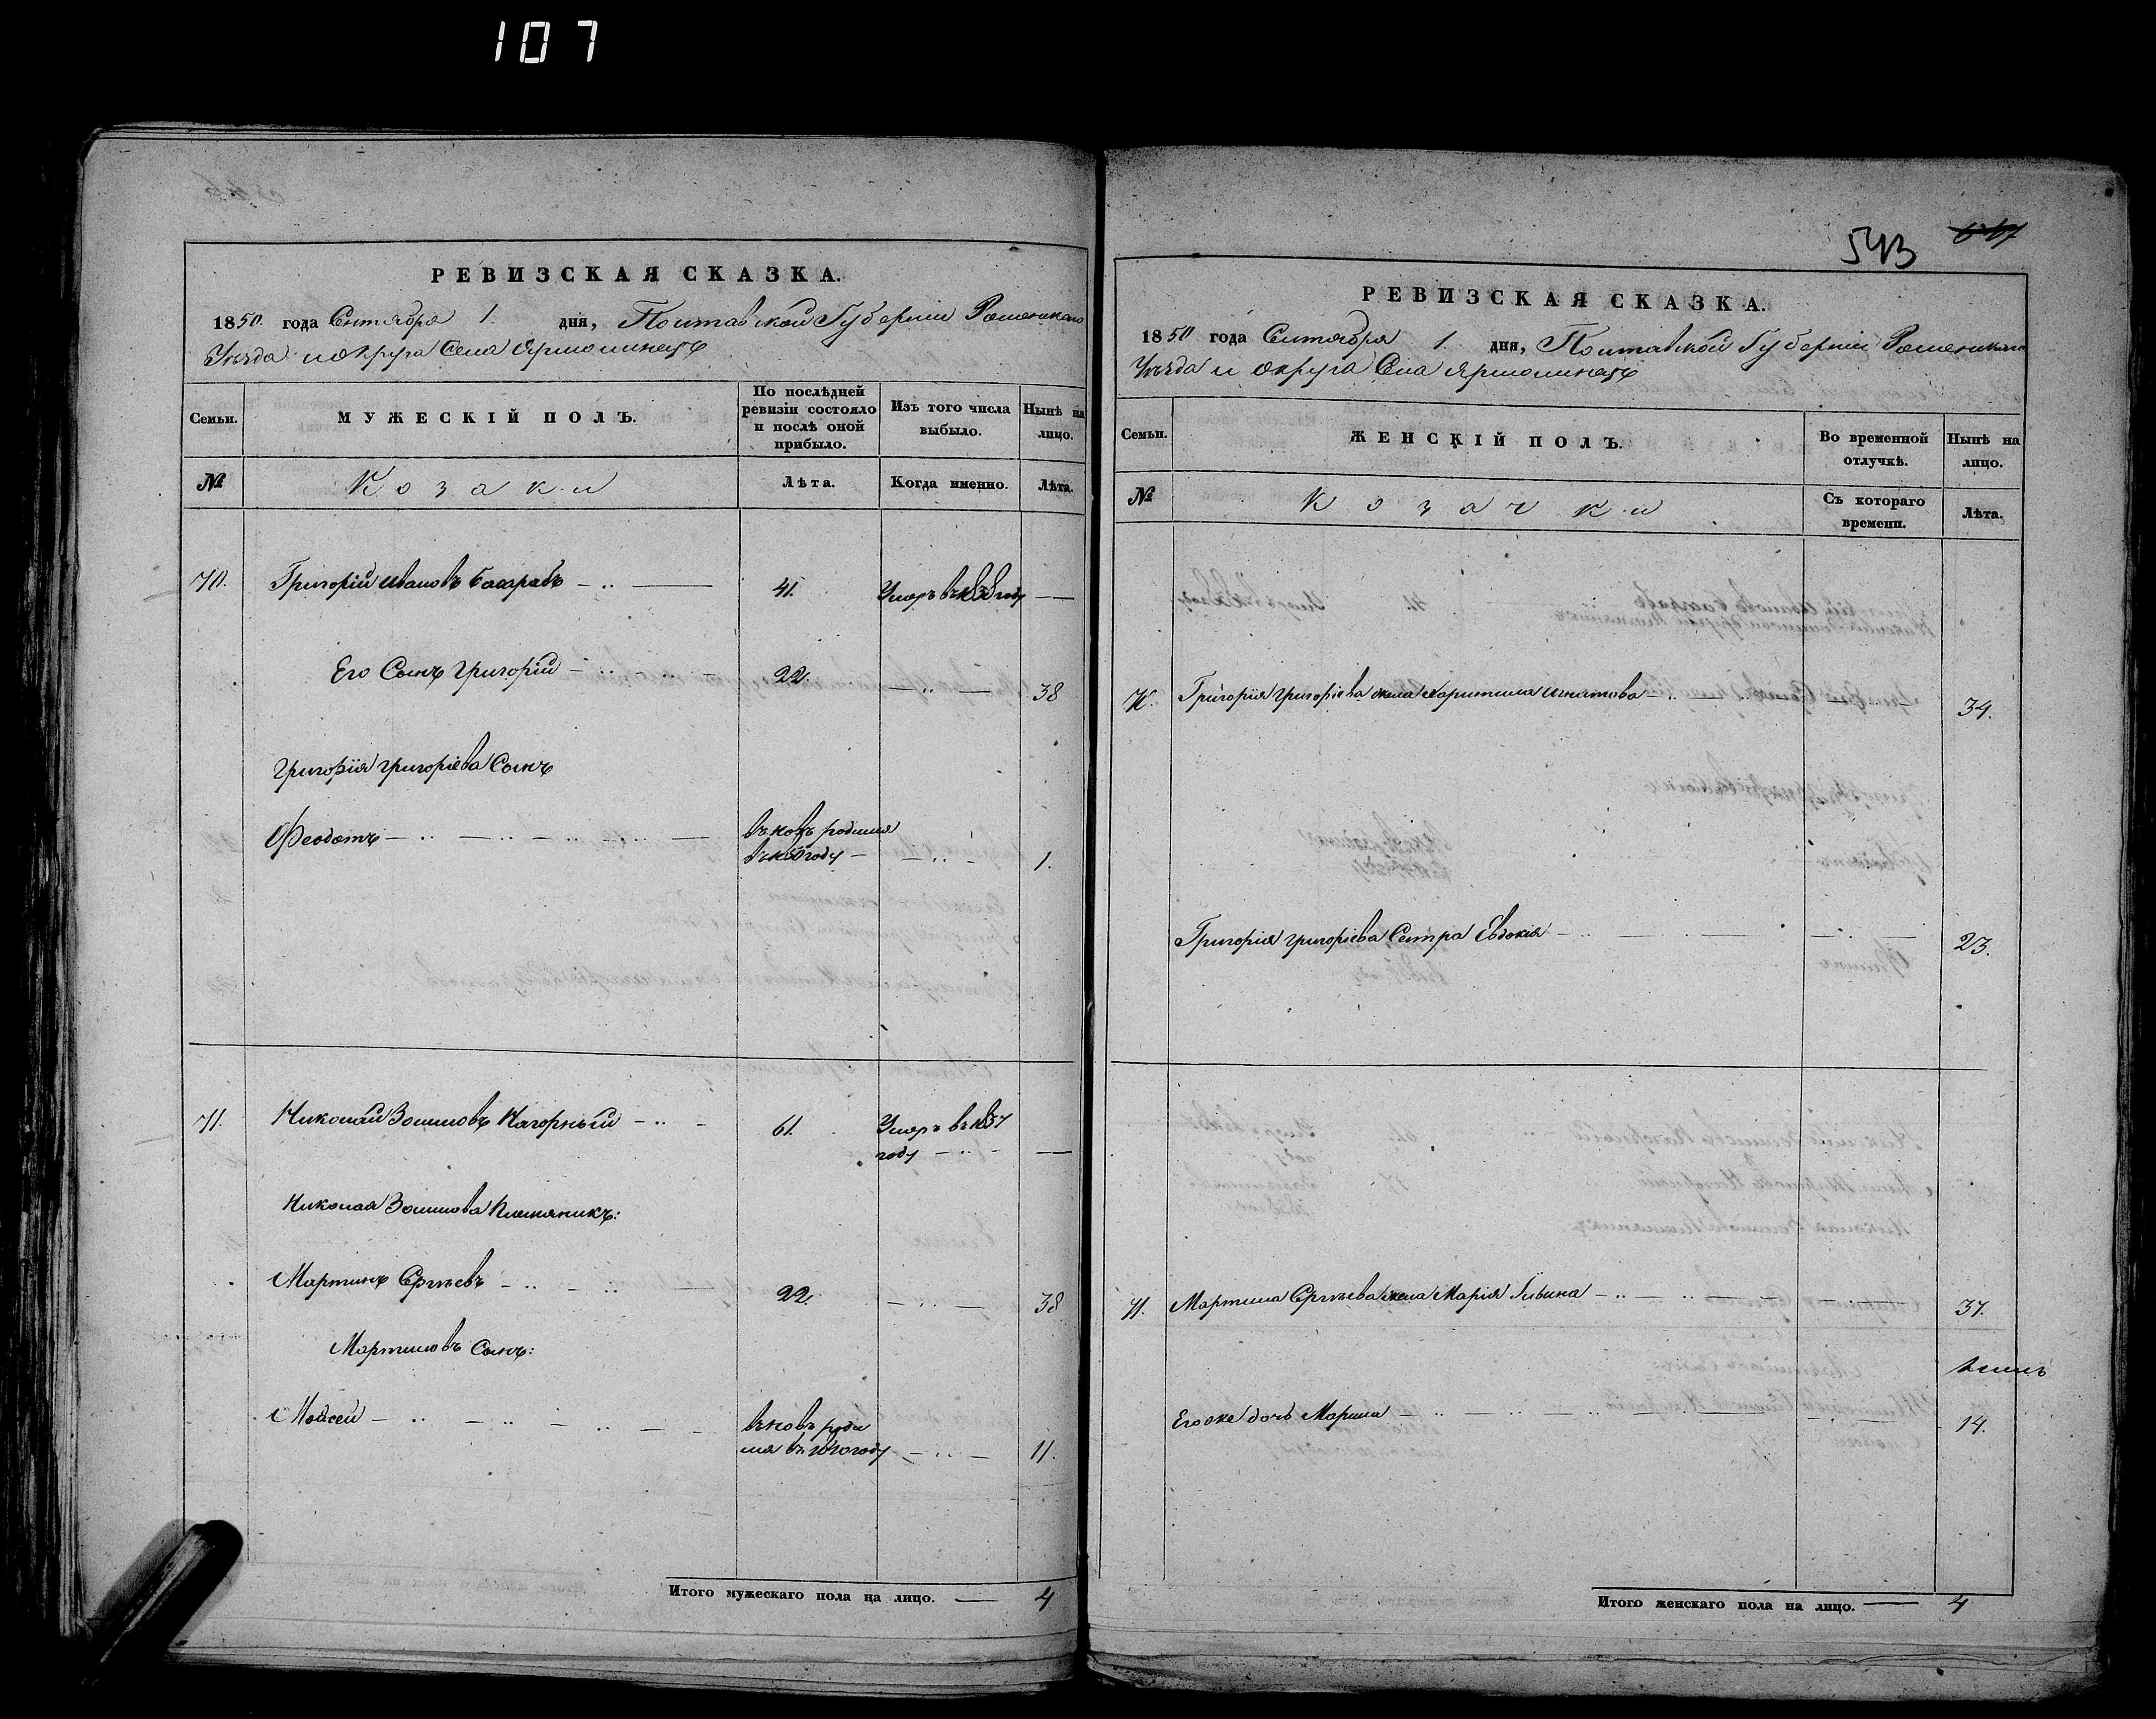 107
РЕВИЗСКАЯ СКАЗКА.
1850. года Сентября 1. дня, Полтавской Губернiи Роменскаго
Уѣзда и округа Села Ярмолинецъ
Семьи.
МУЖЕСКІЙ ПОЛЪ.
По послѣдней ревизіи состояло и послѣ оной прибыло.
Изъ того числа выбыло.
Нынѣ на лицо.
№
Козаки
Лѣта.
Когда именно.
Лѣта.
70. Григорій Ивановъ Басарабъ 41. Умеръ въ 1838 году
Его Сынъ Григорій 22. 38
Григорія Григоріева Сынъ
Феодотъ вновь родился
въ 1850 году 1.
71. Николай Зосимовъ Нагорный 61. Умеръ въ 1837
году
Николая Зосимова Племяникъ:
Мартинъ Сергѣевъ 22. 38
Мартиновъ Сынъ:
Моисей вновь роди
лся въ 1840 году 11.
Итого мужескаго пола на лицо. 4
543
РЕВИЗСКАЯ СКАЗКА.
1850 года Сентября 1 дня, Полтавской Губерніи Роменскаго
Уѣзда и округа Села Ярмолинецъ
Семьи.
ЖЕНСКІЙ ПОЛЪ.
Во временной отлучкѣ.
Нынѣ на лицо.
№
Козачки
Съ котораго времени.
Лѣта.
70. Григорія Григоріева жена Харитина Игнатова 34.
Григорія Григоріева Сестра Евдокія 23.
71. Мартина Сергѣева жена Марія Львина 37.
Его же дочь Марина 14.
Итого женскаго пола на лицо. 4